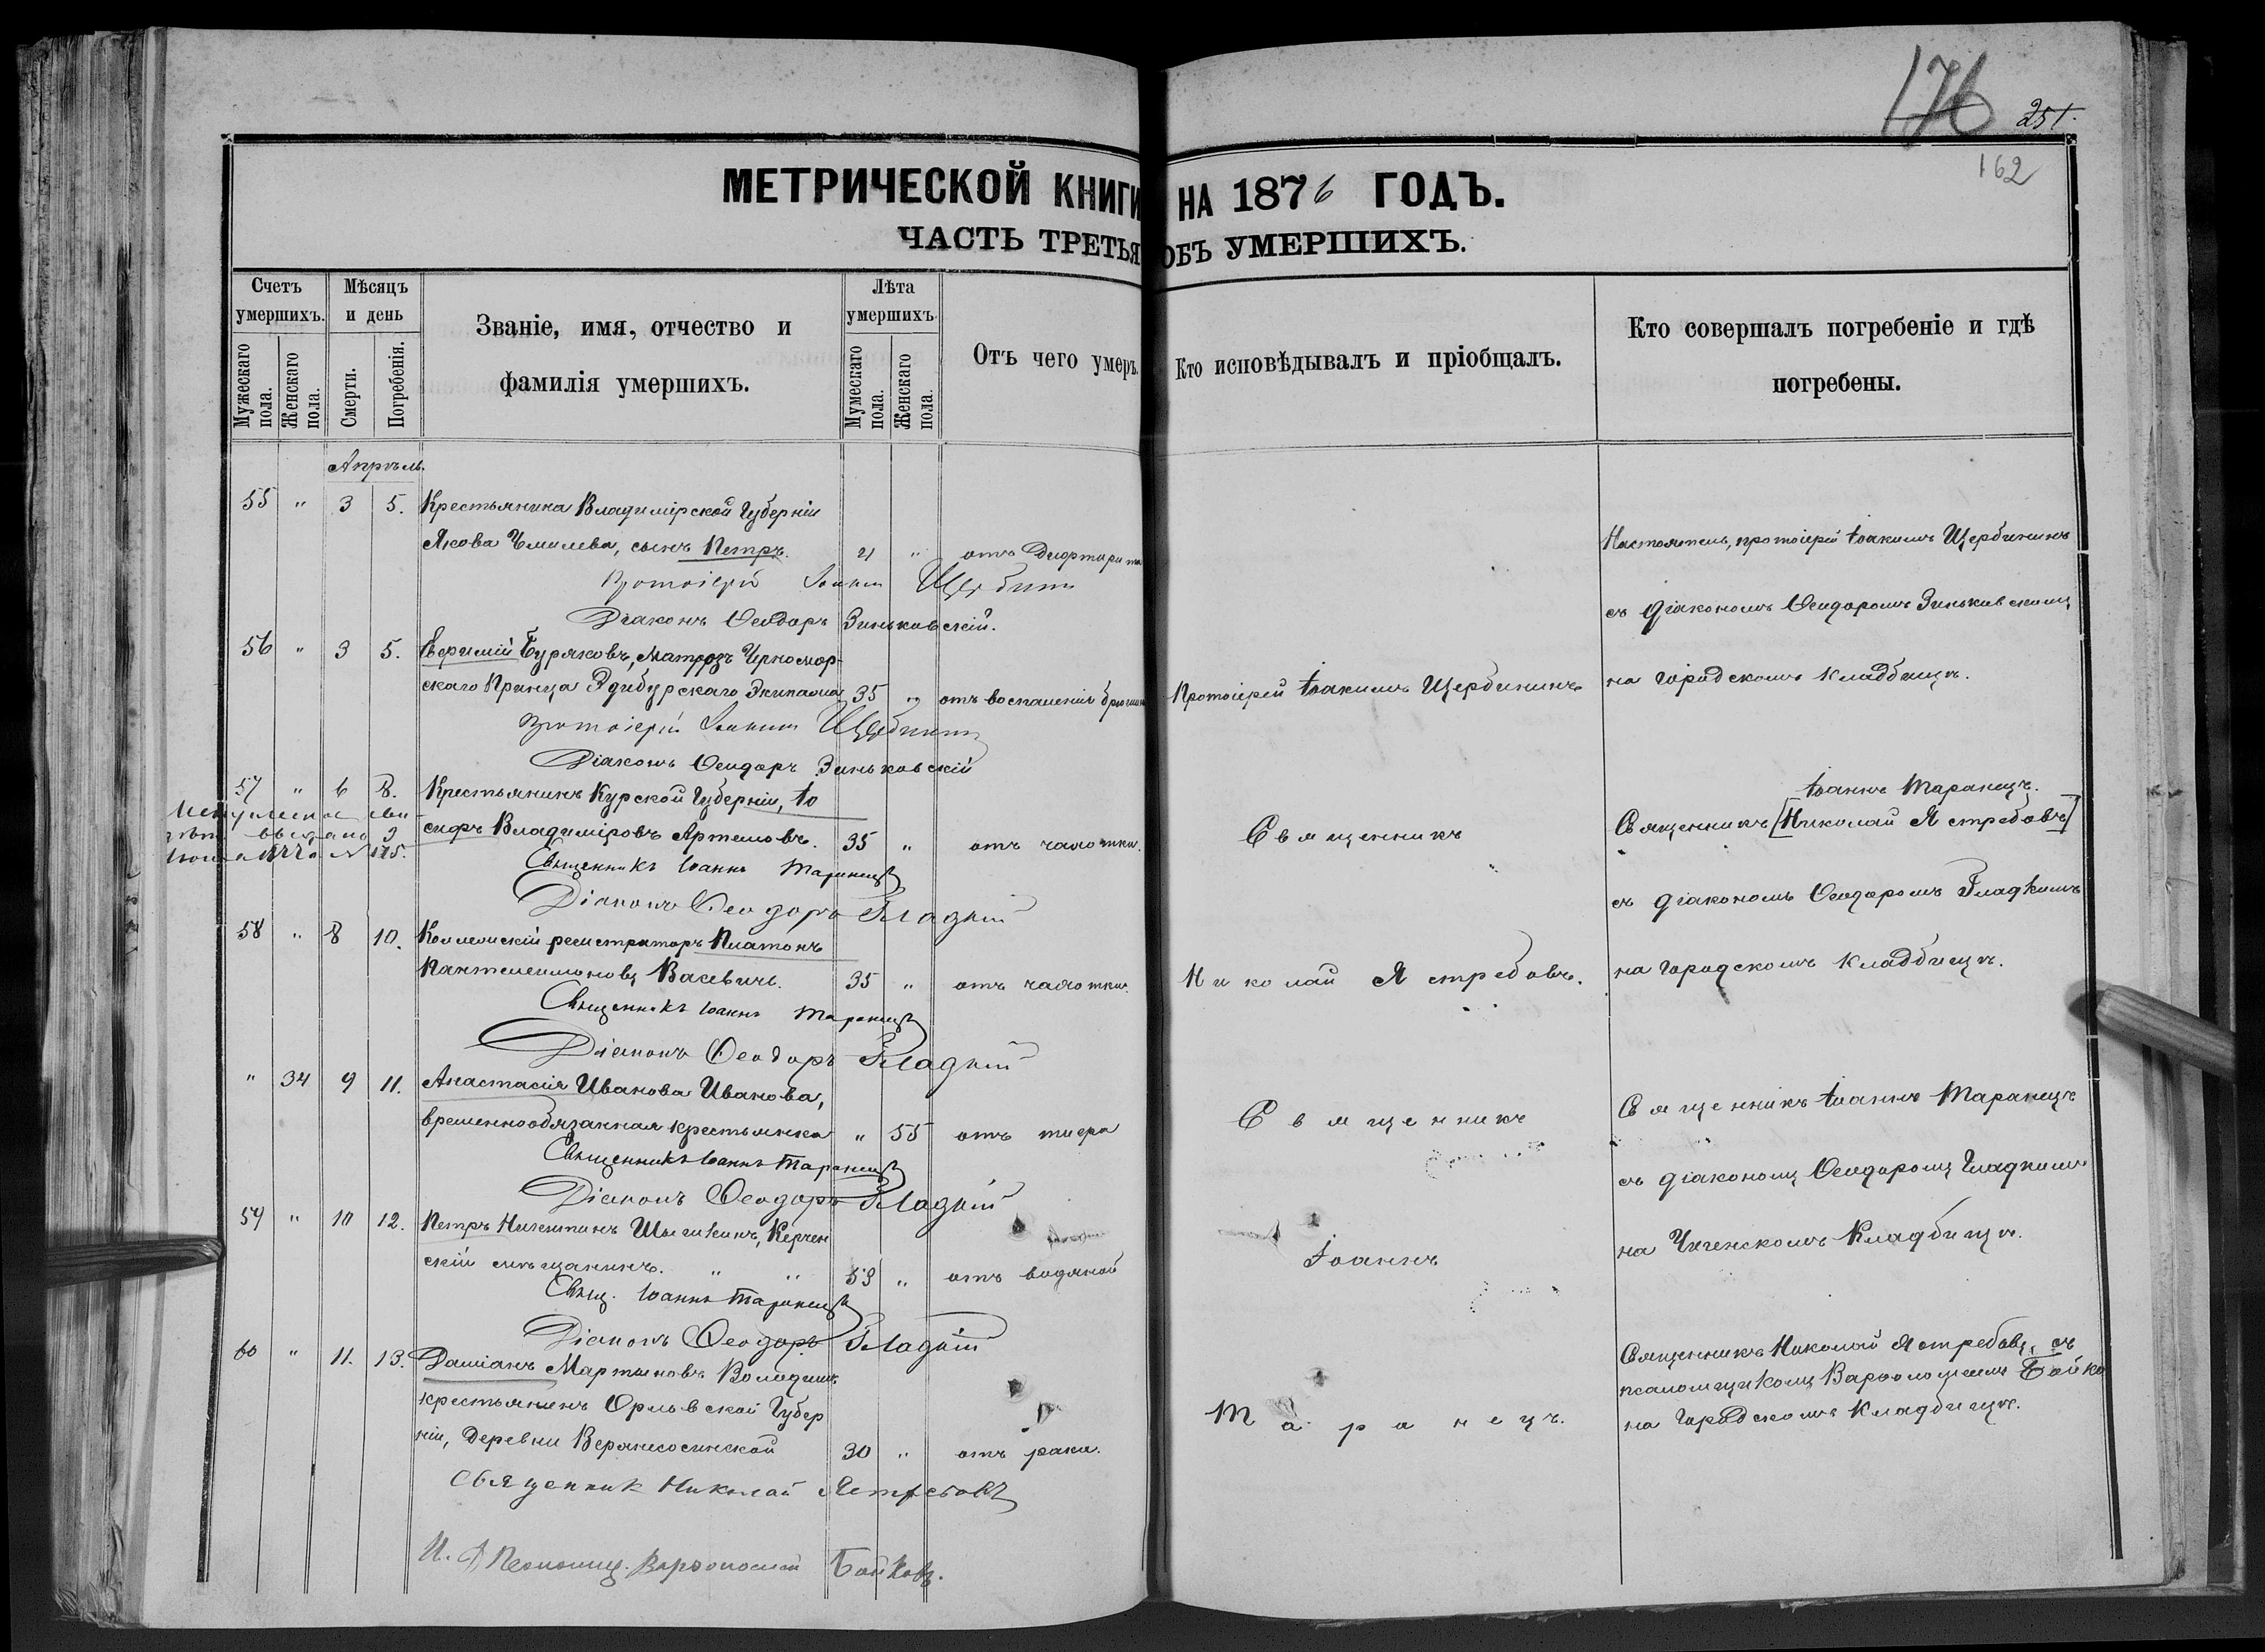 176 251.
162
МЕТРИЧЕСКОЙ КНИГИ НА 1876 ГОДЪ.
ЧАСТЬ ТРЕТЬЯ ОБЪ УМЕРШИХЪ.
Счетъ умершихъ.
Мужескаго пола.
Женскаго пола.
Мѣсяцъ и день
Смерти.
Погребенія.
Званіе, имя, отчество и
фамилія умершихъ.
Лѣта умершихъ.
Мумескаго пола.
Женскаго пола.
Отъ чего умеръ.
Кто исповѣдывалъ и пріобщалъ.
Кто совершалъ погребеніе и гдѣ
погребены.
Апрѣль.
55 " 3 5. Крестьянина Владимірской Губерніи
Якова сынъ Петръ. "
Протоіерей Іоакимъ Щербининъ
Діаконъ Ѳеодоръ Зиньковскій.
Настоятель, протоіерей Іоакимъ Щербининъ
съ діакономъ Ѳеодоромъ Зиньковскимъ
на городскомъ кладбищѣ.
56 " 3 5. Евфимій Буряковъ, матрозъ Черномор-
скаго Принца Эдибурскаго Экипажа 35 " отъ воспаленія брюшины
Протоіерей Іоакимъ Щербининъ
Протоіерей Іоакимъ Щербининъ
Діаконъ Ѳеодоръ Зиньковскій
57 " 6 8. Крестьянинъ Курской Губерніи, Іо
сифъ Владиміровъ Артемовъ. 35 " отъ чахотки.
выдано 9
№ 175.
Священникъ Іоаннъ Таранецъ
Діаконъ Ѳеодоръ Гладкій
Священникъ
Іоаннъ Таранецъ.
Священникъ [Николай Ястребовъ]
съ діакономъ Ѳеодоромъ Гладкимъ
на городскомъ кладбищѣ.
58 " 8 10. Коллежскій регистраторъ Платонъ
Пантелеимоновъ Васевичъ. 35 " отъ чахотки.
Священникъ Іоаннъ Таранецъ
Діаконъ Ѳеодоръ Гладкій
Николай Ястребовъ.
" 34 9 11. Анастасія Иванова Иванова,
временнообязанная крестьянка " 55 отъ тифа
Священникъ Іоаннъ Таранецъ
Діаконъ Ѳеодоръ Гладкій
Священникъ
Священникъ Іоаннъ Таранецъ
съ діакономъ Ѳеодоромъ Гладкимъ
на кладбищѣ.
59 " 10 12. Петръ Керчен
скій мѣщанинъ. " " 53 " отъ водяной
Свящ. Іоаннъ Таранецъ
Діаконъ Ѳеодоръ Гладкій
Іоаннъ
60 " 11. 13. Даміанъ Мартыновъ
крестьянинъ Орловской Губер
ніи, деревни 30 " отъ рака.
Священник Николай Ястребовъ
Таранецъ.
Священникъ Николай Ястребовъ, съ
псаломщикомъ Варѳоломеемъ Бойко
на городскомъ кладбищѣ.
И. д. Псаломщ. Варѳоломей Бойковъ.